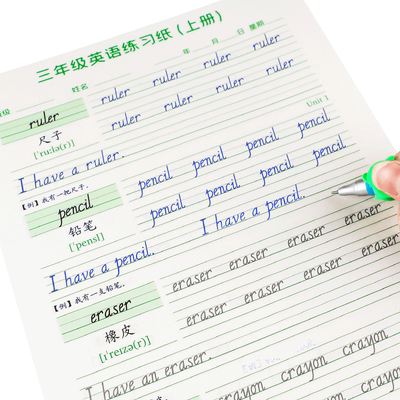 三年级英语练习纸(上册)
姓名 年 月 日 星期
ruler ruler ruler ruler
ruler ruler ruler ruler ruler
尺子
['ru:lə(r)]
Unit 1
I have a ruler.
【例】我有一把尺子。
pencil pencil pencil pencil
pencil pencil pencil pencil pencil
铅笔
['pensl]
I have a pencil. I have a pencil.
【例】我有一支铅笔。
eraser eraser eraser eraser
eraser eraser eraser eraser eraser
橡皮
[ɪ'reɪzə(r)]
I have an eraser.
crayon crayon crayon
crayon crayon crayon